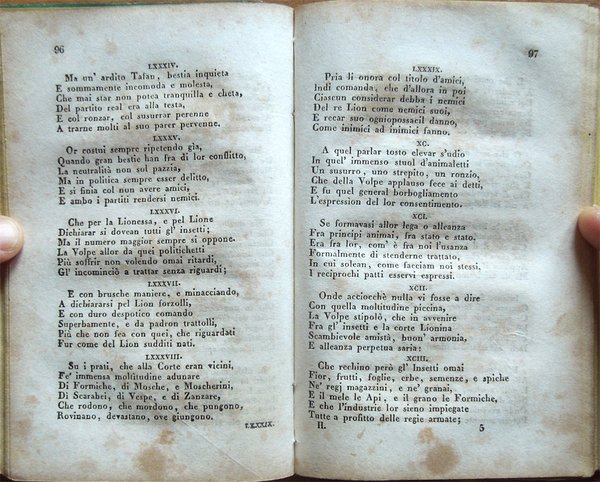 96
LXXXIV.
Ma un' ardito Tafan, bestia inquieta
E sommamente incomoda e molesta,
Che mai star non potea tranquilla e cheta,
Del partito real era alla testa,
E col ronzar, col susurrar perenne
A trarne molti al suo parer pervenne.
LXXXV.
Or costui sempre ripetendo gia,
Quando gran bestie han fra di lor conflitto,
La neutralità non sul pazzia,
Ma in politica sempre esser delitto,
E si finia col non avere amici,
E ambo i partiti rendersi nemici.
LXXXVI.
Che per la Lionessa, e pel Lione
Dichiarar si dovean tutti gl' insetti;
Ma il numero maggior sempre si oppone.
La Volpe allor da quei politichetti
Più soffrir non volendo omai ritardi,
Gl' incominciò a trattar senza riguardi;
LXXXVII.
E con brusche maniere, e minacciando,
A dichiararsi pel Lion forzolli,
E con duro despotico comando
Superbamente, e da padron trattolli,
Più che non fea con quei, che riguardati
Fur come del Lion sudditi nati.
LXXXVIII.
Su i prati, che alla Corte eran vicini,
Fe' immensa moltitudine adunare
Di Formiche, di Mosche, e Moscherini,
Di Scarabei, di Vespe, e di Zanzare,
Che rodono, che mordono, che pungono,
Rovinano, devastano, ove giungono.
LXXXIX.
97
LXXXIX.
Pria li onora col titolo d'amici,
Indi comanda, che d'allora in poi
Ciascun considerar debba i nemici
Del re Lion come nemici suoi,
E recar suo ogniopossacil danno,
Come inimici ad inimici fanno.
XC.
A quel parlar tosto elevar s'udio
In quel' immenso stuol d'animaletti
Un susurro, uno strepito, un ronzio,
Che della Volpe applauso fece ai detti,
E fu quel general borbogliamento
L'espression del lor consentimento.
XCI.
Se formavasi allor lega o alleanza
Fra principi animai, fra stato e stato.
Era fra lor, com' è fra noi l'usanza
Formalmente di stenderne trattato,
In cui solean, come facciam noi stessi,
I reciprochi patti esservi espressi.
XCII.
Onde acciocchè nulla vi fosse a dire
Con quella moltitudine piccina,
La Volpe stipolò, che in avvenire
Fra gl' insetti e la corte Lionina
Scambievole amistà, buon' armonia,
E alleanza perpetua saria:
XCIII.
Che rechino però gl' Insetti omai
Fior, frutti, foglie, erbe, semenze, e spiche
Ne' regj magazzini, e ne' granai,
E il mele le Api, e il grano le Formiche,
E che l'industrie lor sieno impiegate
Tutte a profitto delle regie armate;
II. 5